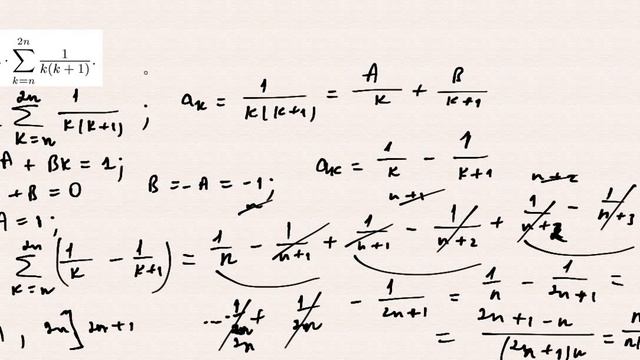 · \sum_{k=n}^{2n} \frac{1}{k(k+1)}.
\sum_{k=n}^{2n} \frac{1}{k(k+1)} ; a_k = \frac{1}{k(k+1)} = \frac{A}{k} + \frac{B}{k+1}
A + Bk = 1; a_k = \frac{1}{k} - \frac{1}{k+1}
+ B = 0 B = -A = -1;
A = 1;
\sum_{k=n}^{2n} \left( \frac{1}{k} - \frac{1}{k+1} \right) = \frac{1}{n} - \frac{1}{n+1} + \frac{1}{n+1} - \frac{1}{n+2} + \frac{1}{n+2} - \frac{1}{n+3}
, 2n] 2n+1 ... - \frac{1}{2n} + \frac{1}{2n} - \frac{1}{2n+1} = \frac{1}{n} - \frac{1}{2n+1} =
= \frac{2n+1-n}{(2n+1)n} =